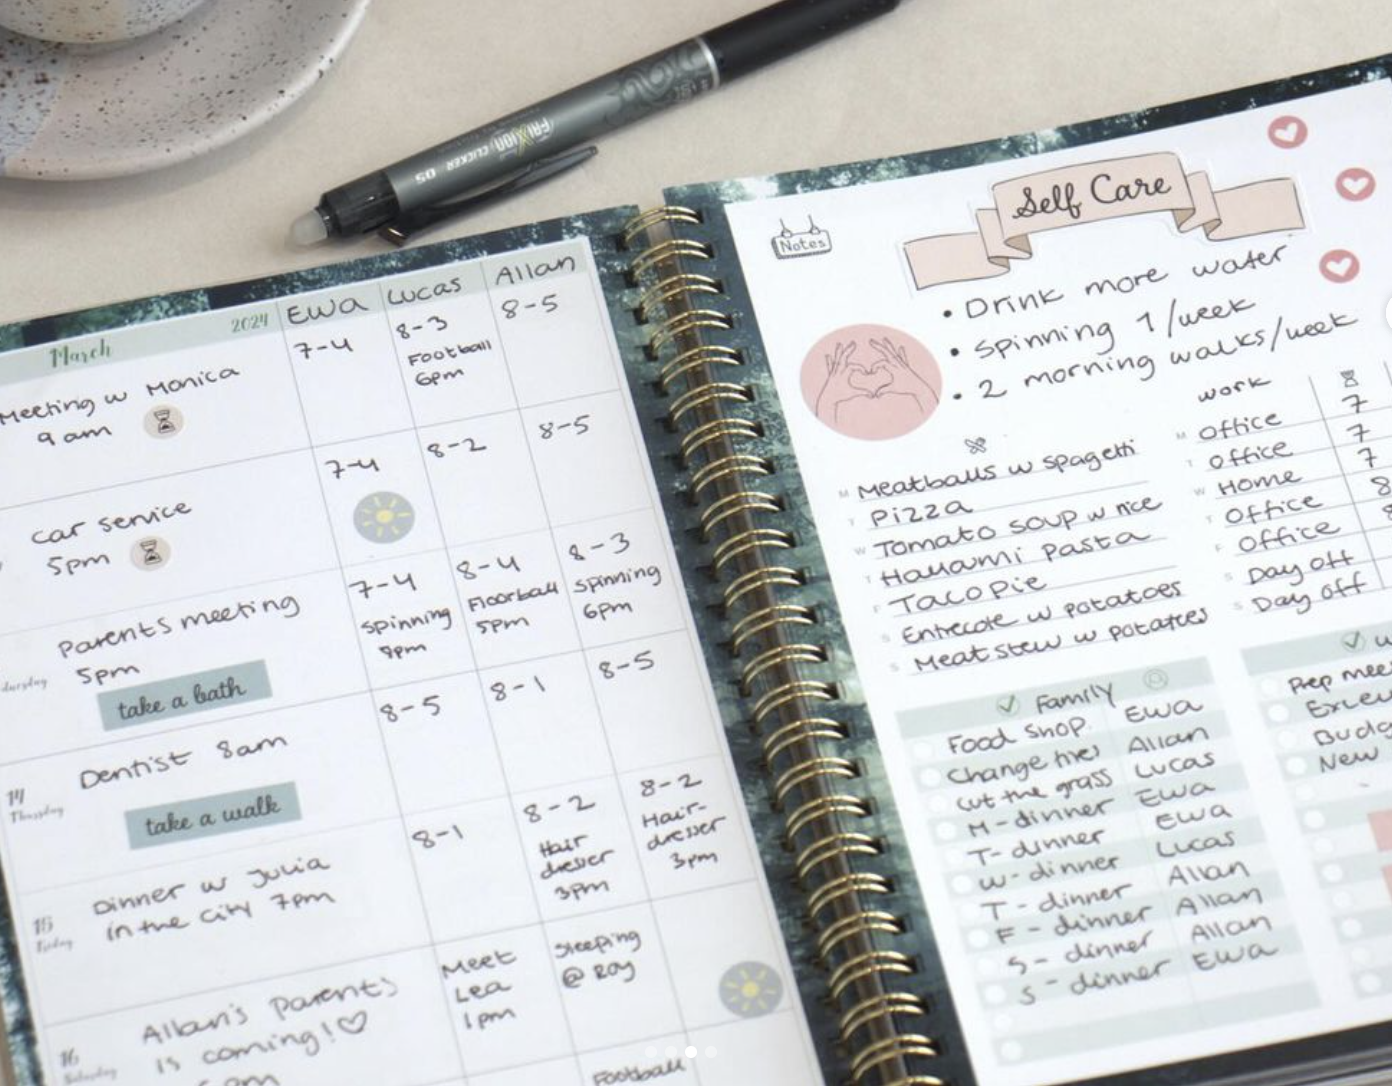 FRIXION CLICKER 05
March 2024 EWA Lucas Allan
Meeting w Monica
9 am
7-4
8-3
Football
6pm
8-5
Car service
5pm
7-4
8-2
8-5
Parents meeting
5pm
take a bath
7-4
Spinning
8-4
Floorball
5pm
8-3
Spinning
6pm
14
Thursday
Dentist 8am
take a walk
8-5
8-1
8-5
15
Friday
Dinner w Julia
in the city 7pm
8-1
8-2
Hair
dresser
3pm
8-2
Hair-
dresser
3pm
16
Saturday
Allan's parents
is coming! ♡
Meet
Lea
1pm
Sleeping
@ Roy
Football
Notes
Self Care
• Drink more water
• Spinning 1/week
• 2 morning walks/week
M Meatballs w spagetti
T Pizza
W Tomato soup w rice
T Pasta
F Taco Pie
S Entrecote w potatoes
S Meat stew w potatoes
work
M Office 7
T Office 7
W Home 7
T Office 8
F Office 8
S Day off
S Day off
Family
Food shop. EWA
Change tires Allan
Cut the grass Lucas
M-dinner EWA
T-dinner EWA
W-dinner Lucas
T-dinner Allan
F-dinner Allan
S-dinner Allan
S-dinner EWA
Prep
New